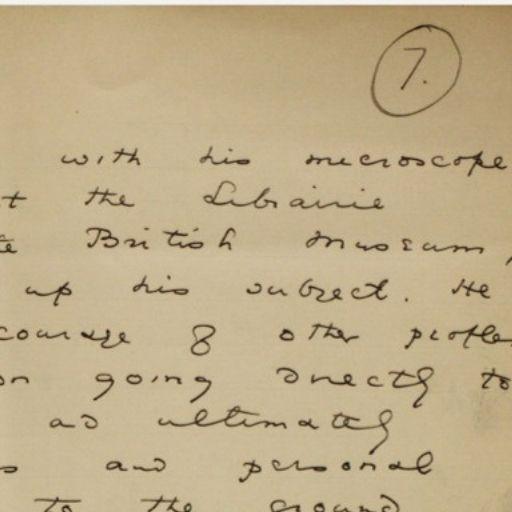 7.
with his microscope
t the Librairie
te British Museum,
up his subject. He
courage & other people
on going directly to
ad ultimately
s and personal
to the ground